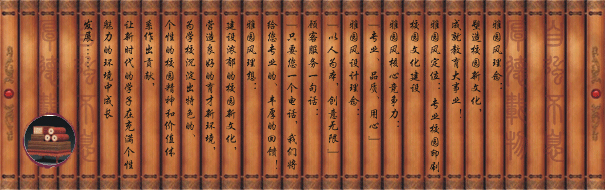 雅园风理念：
塑造校园新文化，
成就教育大事业！
雅园风定位：专业校园印刷
校园文化建设
雅园风核心竞争力：
「专业、品质、用心」
雅园风设计理念：
「以人为本，创意无限」
顾客服务一句话：
「只要您一个电话，我们将
给您专业的、丰厚的回馈！
雅园风理想：
建设浓郁的校园新文化，
营造良好的育才新环境，
为学校沉淀出特色的、
个性的校园精神和价值体
系作出贡献，
让新时代的学子在充满个性
魅力的环境中成长
发展……